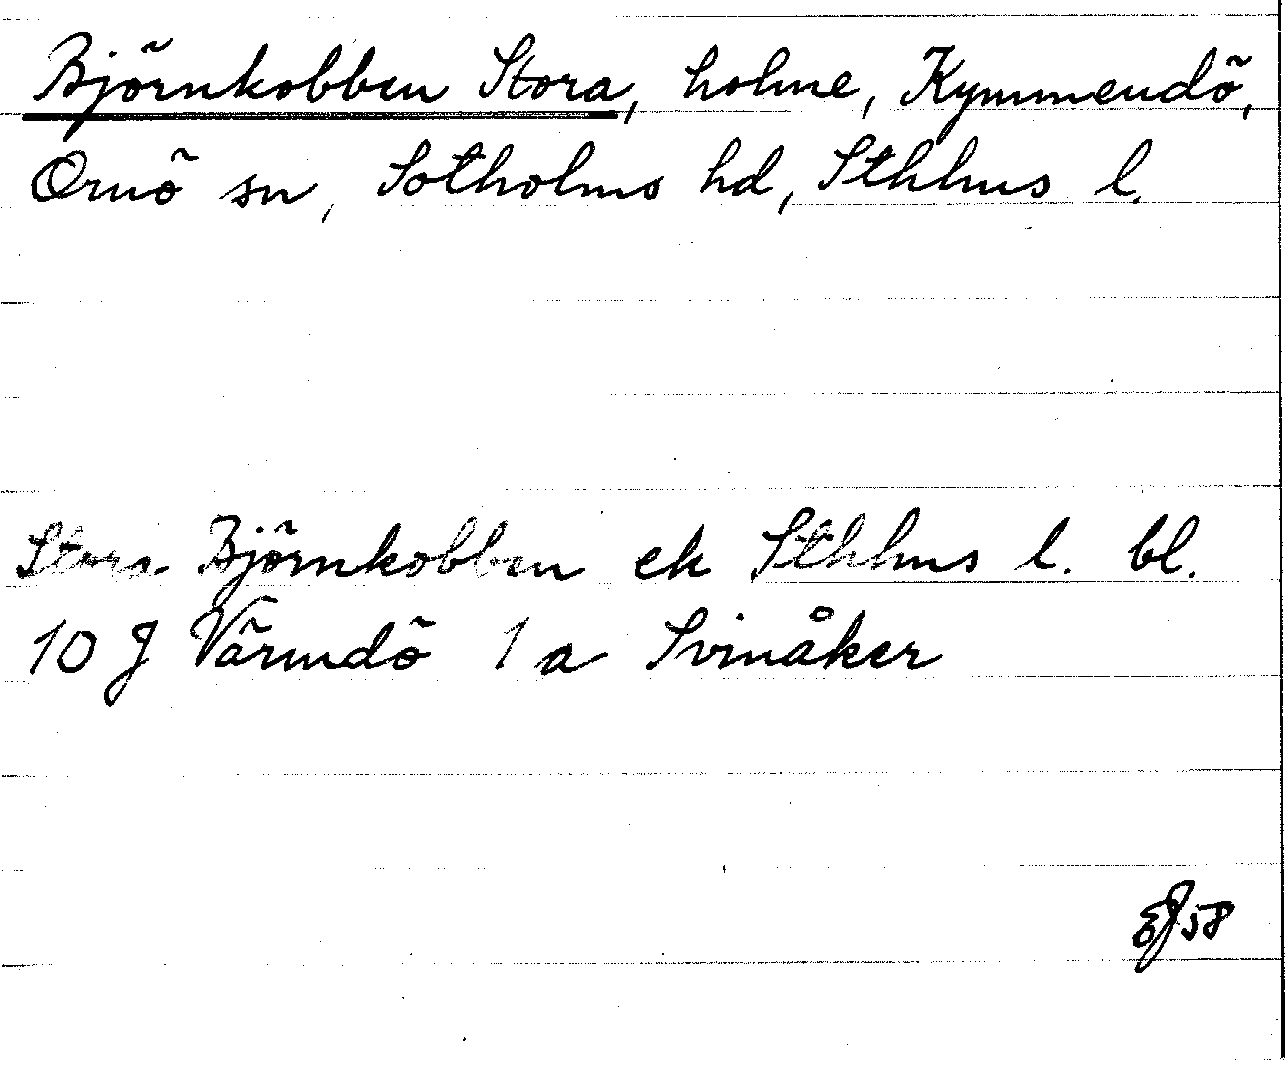 Björnkobben Stora, holme, Kymmendö,
Ornö sn, Sotholms hd, Sthlms l.
Stora Björnkobben ek Sthlms l. bl.
10 J Värmdö 1 a Svinåker
EJ 58